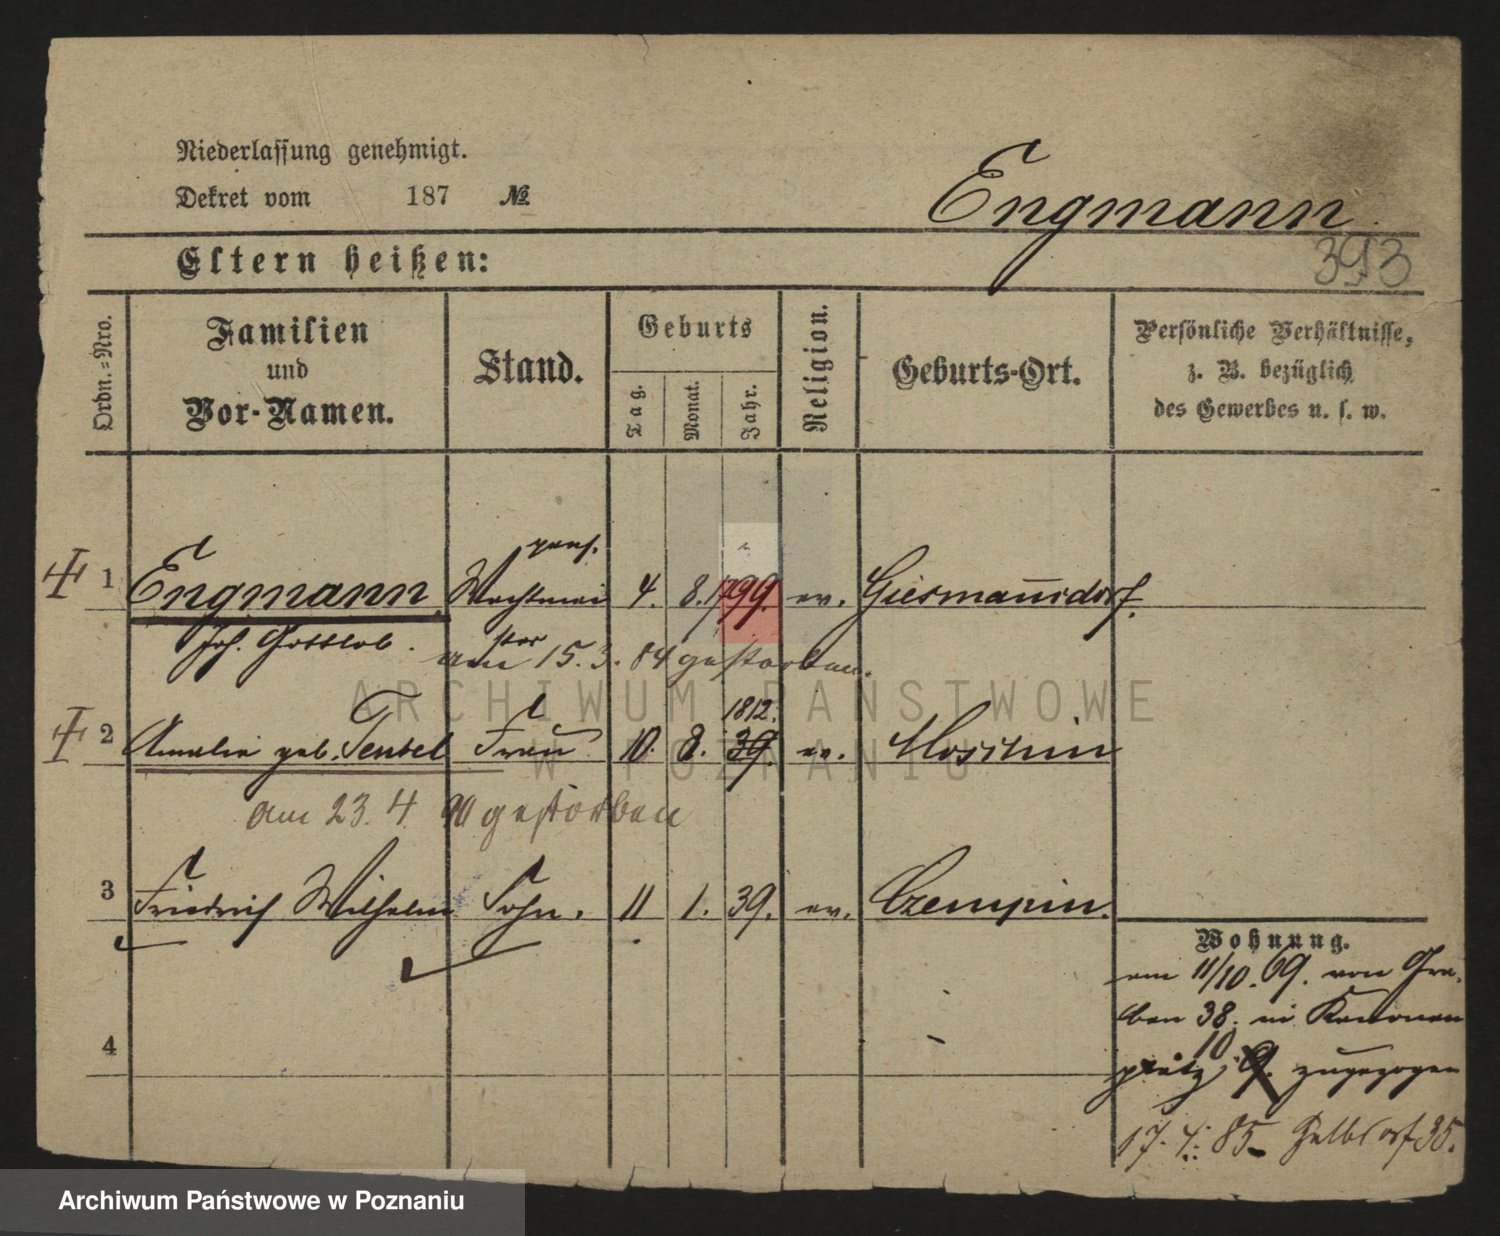 Niederlassung genehmigt.
Dekret vom 187 №
Engmann.
393
Eltern heißen:
Ordn.-Nro.
Familien
und
Vor-Namen.
Stand.
Geburts
Tag.
Monat.
Jahr.
Religion.
Geburts-Ort.
Persönliche Verhältnisse,
z. B. bezüglich
des Gewerbes u. s. w.
pens.
1 Engmann Wachtmei 4. 8. 1799. ev. Giesmannsdorf.
Joh. Gottlob. ster
am 15. 3. 84 gestorben.
1812.
2 Amalie geb. Frau 10. 8. 39. ev. Moschin
am 23. 4. 90 gestorben
3 Friedrich Wilhelm Sohn. 11 1. 39. ev. Czempin.
Wohnung.
am 11/10. 69. von Gra-
ben 38. in Kanonen
10
platz 9. zugezogen
4
17. 4. 85 35.
ARCHIWUM PAŃSTWOWE
W POZNANIU
Archiwum Państwowe w Poznaniu